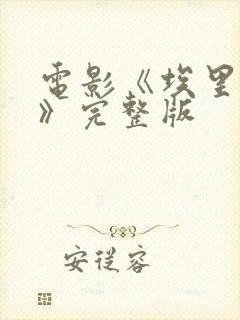 電影《埃里
》完整版
安從容